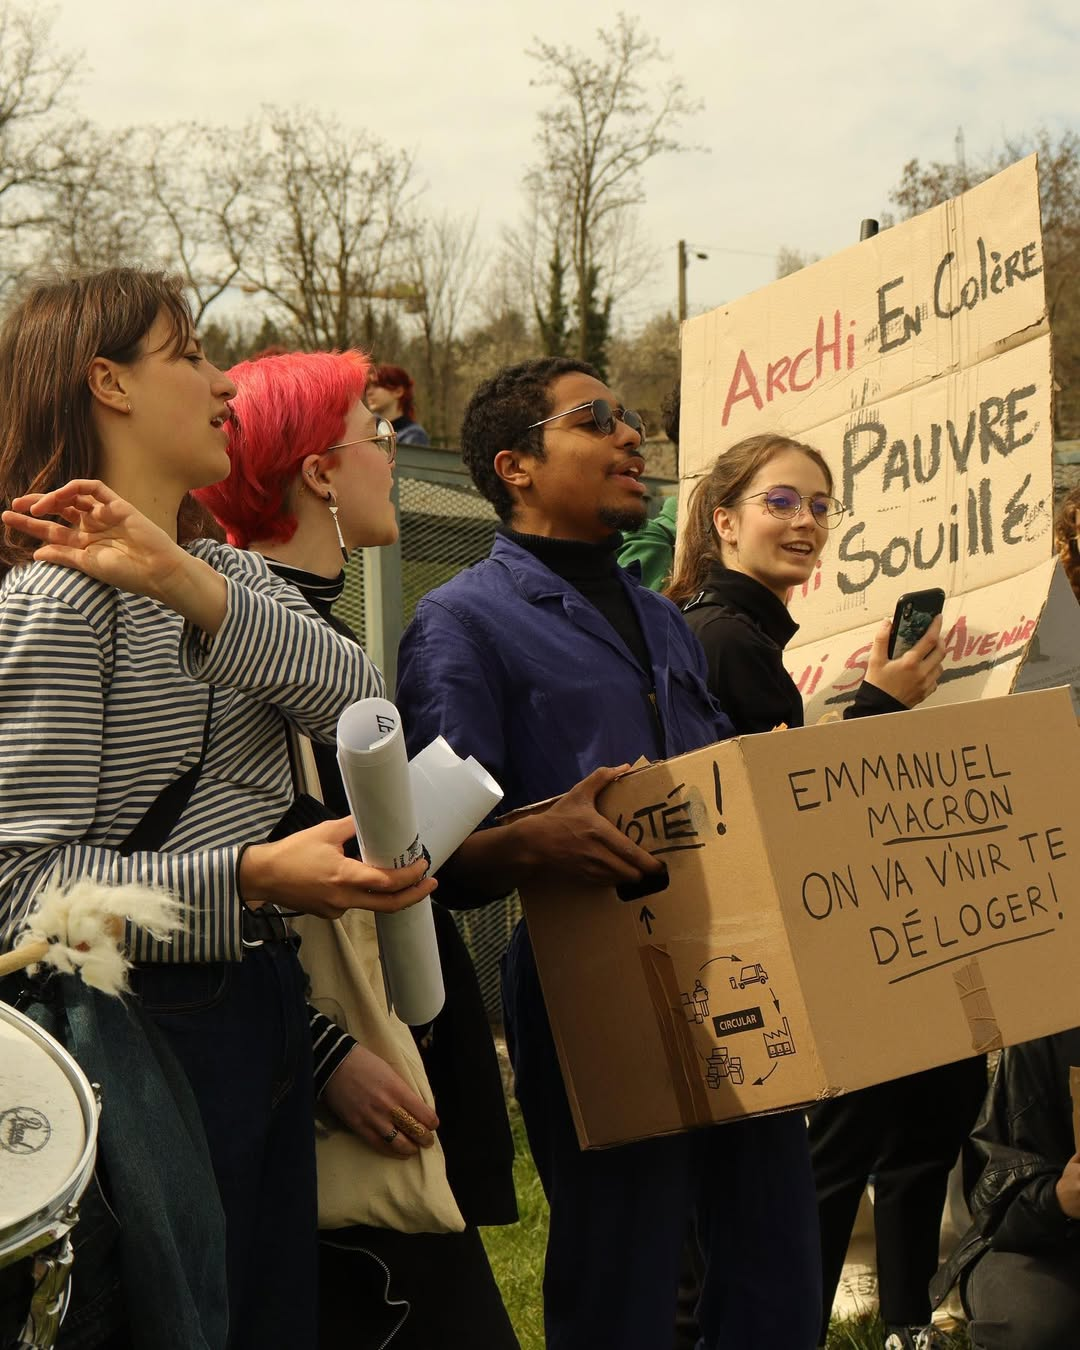 ArcHi En Colère
PAUVRE
Souillé
Avenir
EMMANUEL
MACRON
ON VA V'NIR TE
DÉLOGER!
OTÉ !
CIRCULAR
Pearl